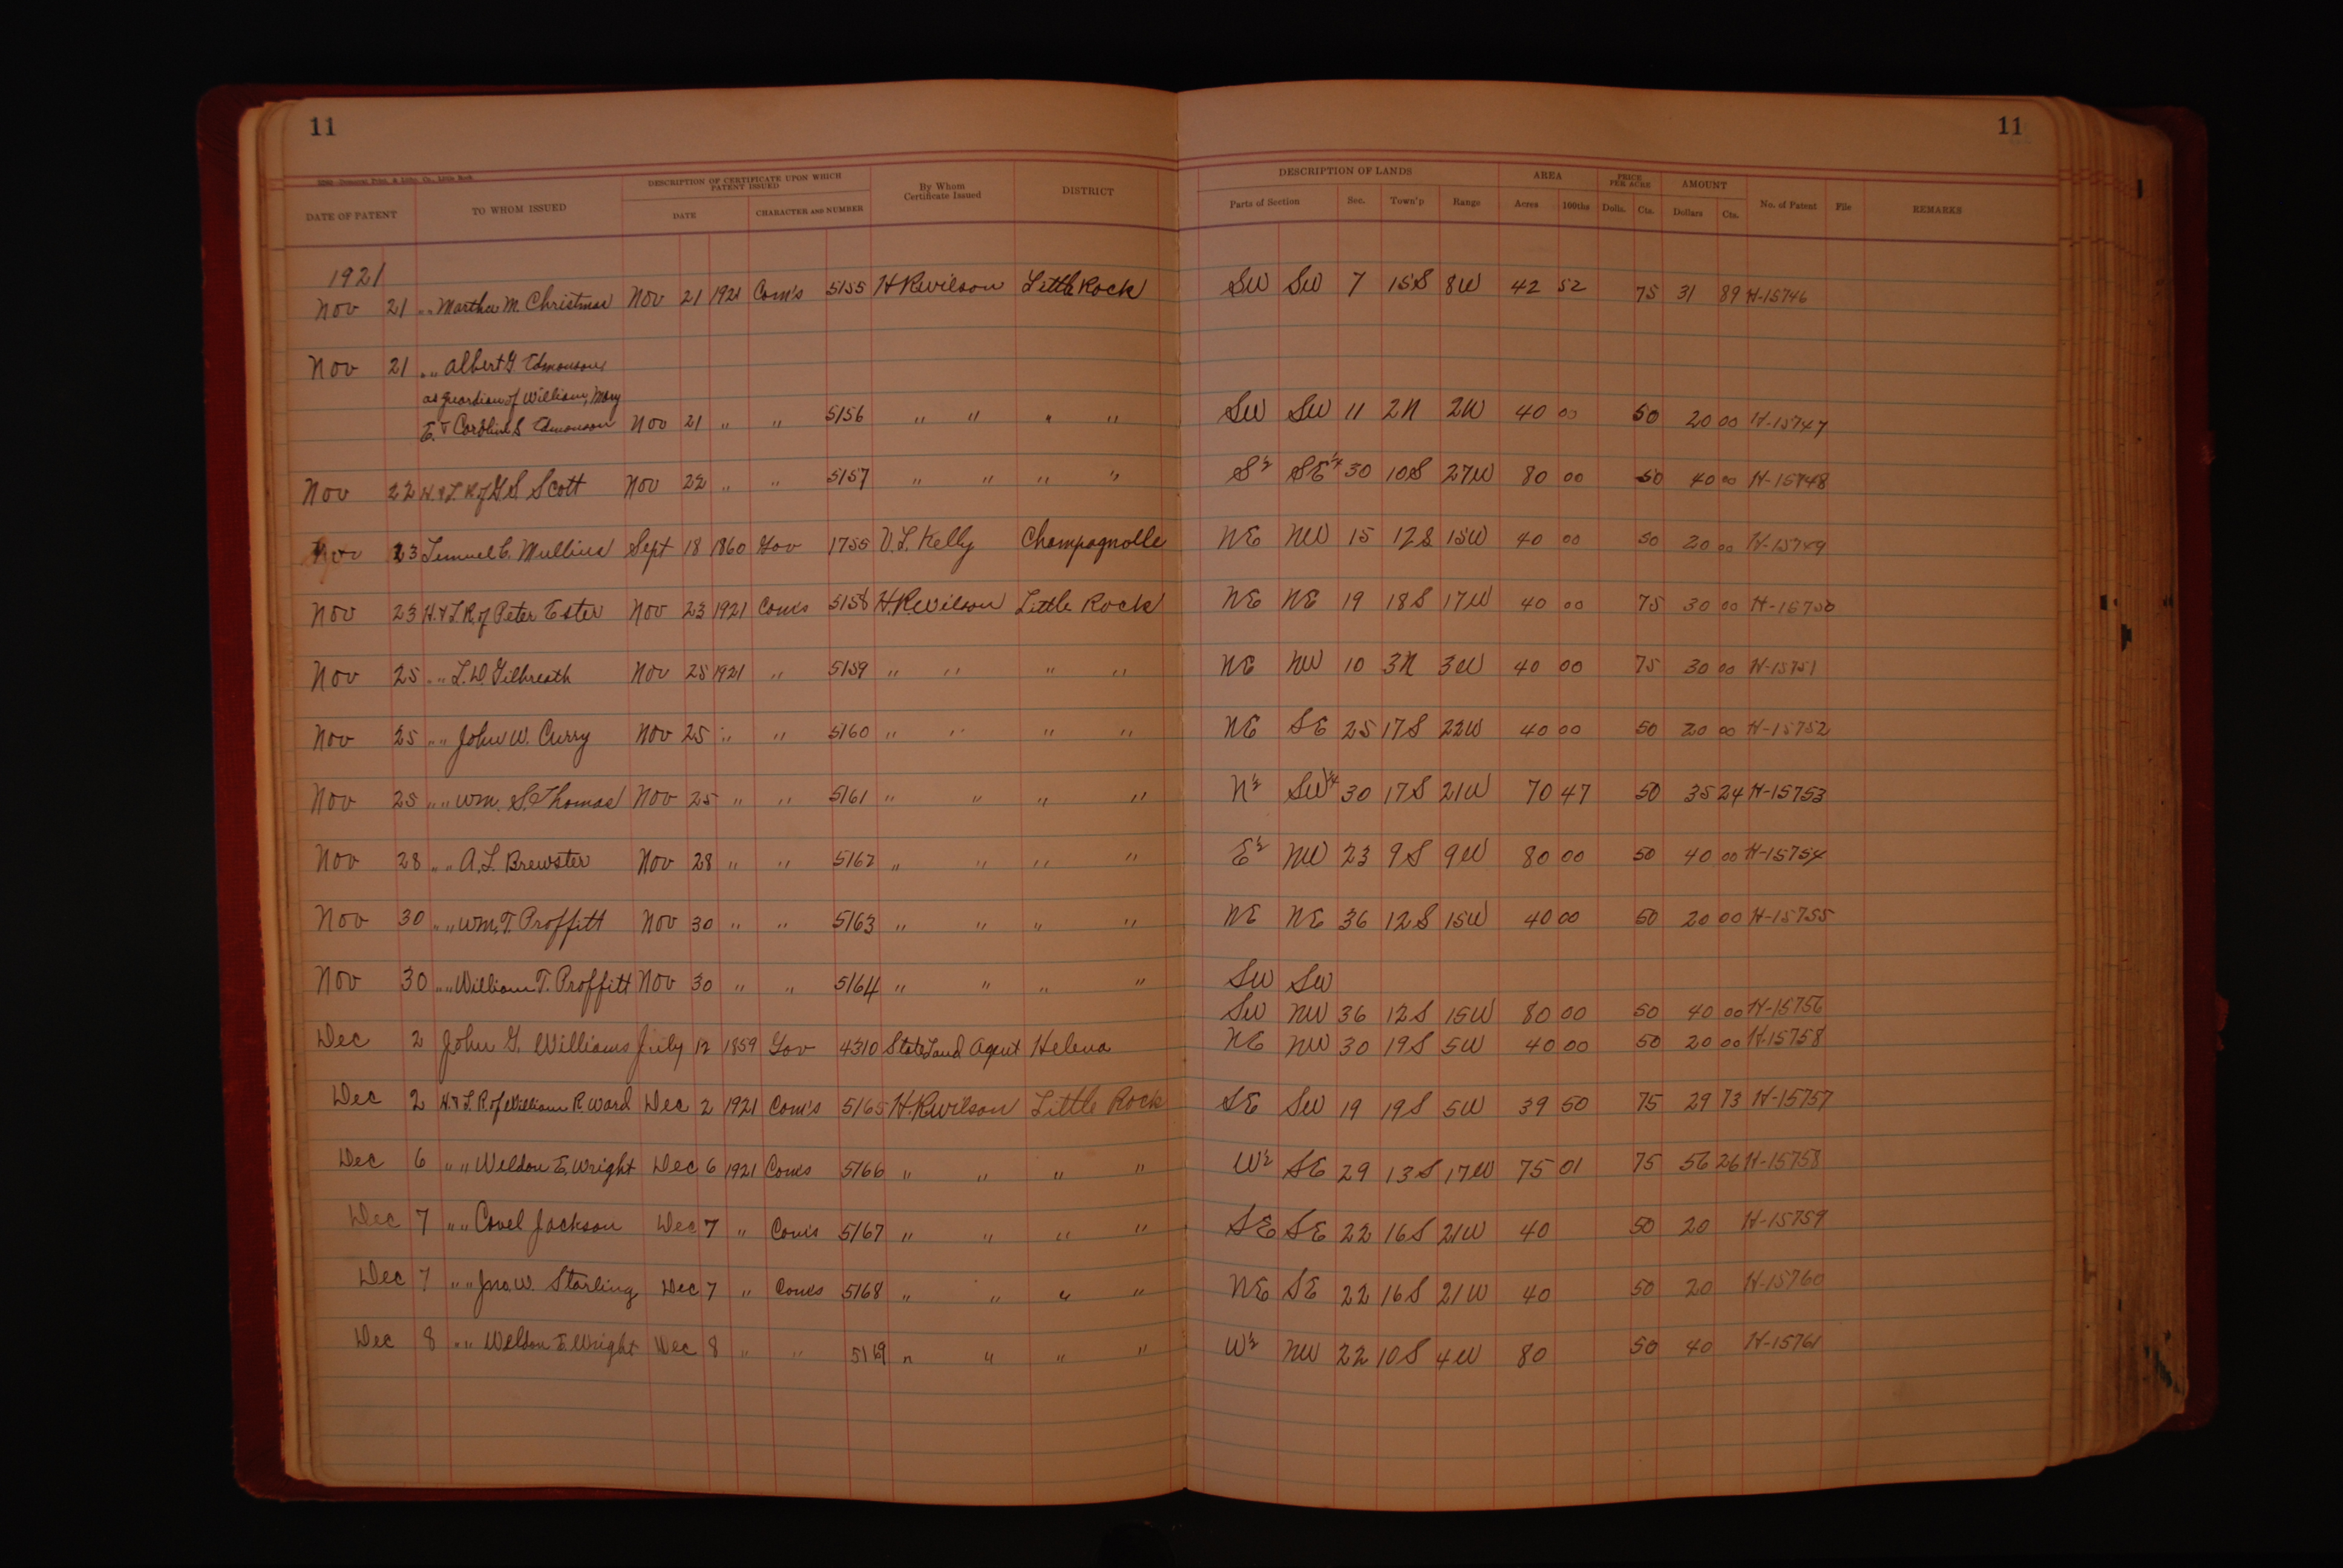 11
11
DATE OF PATENT TO WHOM ISSUED DESCRIPTION OF CERTIFICATE UPON WHICH PATENT ISSUED DATE CHARACTER AND NUMBER By Whom Certificate Issued DISTRICT DESCRIPTION OF LANDS Parts of Section Sec. Town'p Range AREA Acres 100ths PRICE PER ACRE Dolls. Cts. AMOUNT Dollars Cts. No. of Patent File REMARKS
1921
Nov 21 " " Martha M. Christmas Nov 21 1921 Com's 5155 H R Wilson Little Rock SW SW 7 15S 8W 42 52 75 31 89 H-15746
Nov 21 " " Albert G Edmonson
as guardian of William, Mary
E. & Caroline S Edmonson Nov 21 " " 5156 " " " " SW SW 11 2N 2W 40 00 50 20 00 H-15747
Nov 22 H. & L. R of G S Scott Nov 22 " " 5157 " " " " S½ SE¼ 30 10S 27W 80 00 50 40 00 H-15748
Nov 23 Lemuel C. Mullins Sept 18 1860 Gov 1755 V. L. Kelly Champagnolle NE NW 15 12S 15W 40 00 50 20 00 H-15749
Nov 23 H. & L. R. of Peter Ester Nov 23 1921 Com's 5158 H R Wilson Little Rock NE NE 19 18S 17W 40 00 75 30 00 H-15750
Nov 25 " " L. D. Gilbreath Nov 25 1921 " 5159 " " " " NE NW 10 3N 3W 40 00 75 30 00 H-15751
Nov 25 " " John W. Curry Nov 25 " " 5160 " " " " NE SE 25 17S 22W 40 00 50 20 00 H-15752
Nov 25 " " Wm. S. Thomas Nov 25 " " 5161 " " " " N½ SW¼ 30 17S 21W 70 47 50 35 24 H-15753
Nov 28 " " A. L. Brewster Nov 28 " " 5162 " " " " E½ NW 23 9S 9W 80 00 50 40 00 H-15754
Nov 30 " " Wm. T. Proffitt Nov 30 " " 5163 " " " " NE NE 36 12S 15W 40 00 50 20 00 H-15755
Nov 30 " " William T. Proffitt Nov 30 " " 5164 " " " " SW SW
SW NW 36 12S 15W 80 00 50 40 00 H-15756
Dec 2 John G. Williams July 12 1859 Gov 4310 State Land Agent Helena NE NW 30 19S 5W 40 00 50 20 00 H-15758
Dec 2 H. & L. R. of William R. Ward Dec 2 1921 Com's 5165 H R Wilson Little Rock SE SW 19 19S 5W 39 50 75 29 73 H-15757
Dec 6 " " Weldon E. Wright Dec 6 1921 Com's 5166 " " " " W½ SE 29 13S 17W 75 01 75 56 26 H-15758
Dec 7 " " Covel Jackson Dec 7 " Com's 5167 " " " " SE SE 22 16S 21W 40 50 20 H-15759
Dec 7 " " Jno. W. Starling Dec 7 " Com's 5168 " " " " NE SE 22 16S 21W 40 50 20 H-15760
Dec 8 " " Weldon E. Wright Dec 8 " " 5169 " " " " W½ NW 22 10S 4W 80 50 40 H-15761